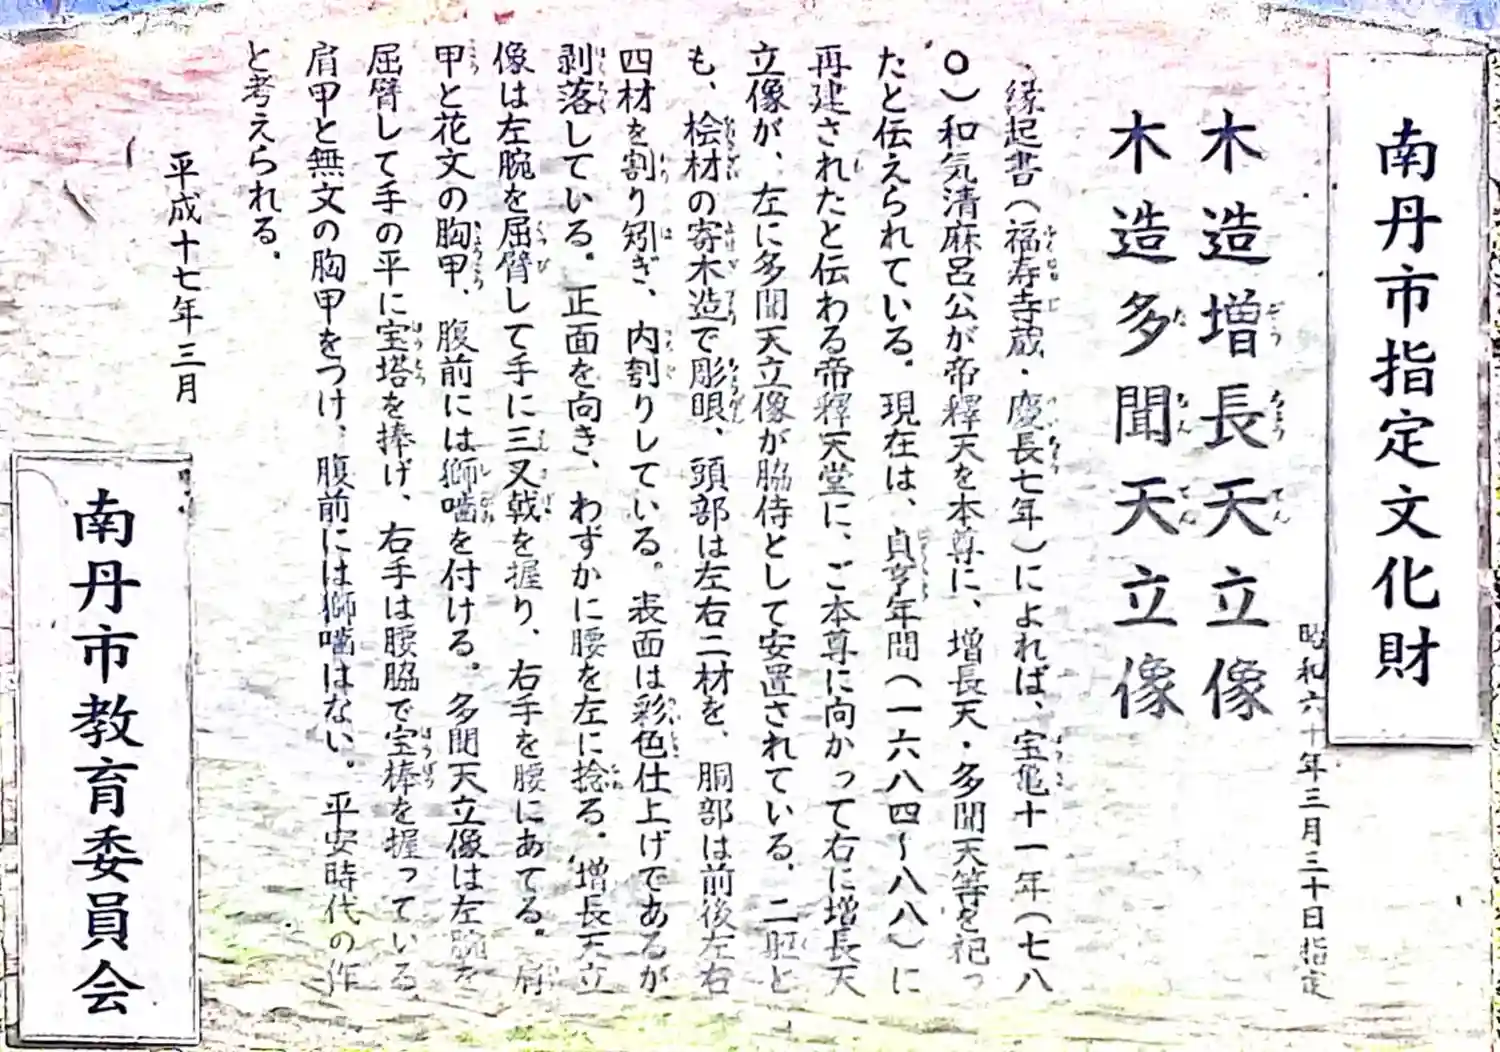 南丹市指定文化財
昭和六十年三月三十日指定
木造増長天立像
木造多聞天立像
縁起書（福寿寺蔵・慶長七年）によれば、宝亀十一年（七八
〇）和気清麻呂公が帝釋天を本尊に、増長天・多聞天等を祀っ
たと伝えられている。現在は、貞享年間（一六八四〜八八）に
再建されたと伝わる帝釋天堂に、ご本尊に向かって右に増長天
立像が、左に多聞天立像が脇侍として安置されている。二躯と
も、桧材の寄木造で彫眼、頭部は左右二材を、胴部は前後左右
四材を割り矧ぎ、内刳りしている。表面は彩色仕上げであるが
剥落している。正面を向き、わずかに腰を左に捻る。増長天立
像は左腕を屈臂して手に三叉戟を握り、右手を腰にあてる。肩
甲と花文の胸甲、腹前には獅噛を付ける。多聞天立像は左腕を
屈臂して手の平に宝塔を捧げ、右手は腰脇で宝棒を握っている。
肩甲と無文の胸甲をつけ、腹前には獅噛はない。平安時代の作
と考えられる。
平成十七年三月
南丹市教育委員会